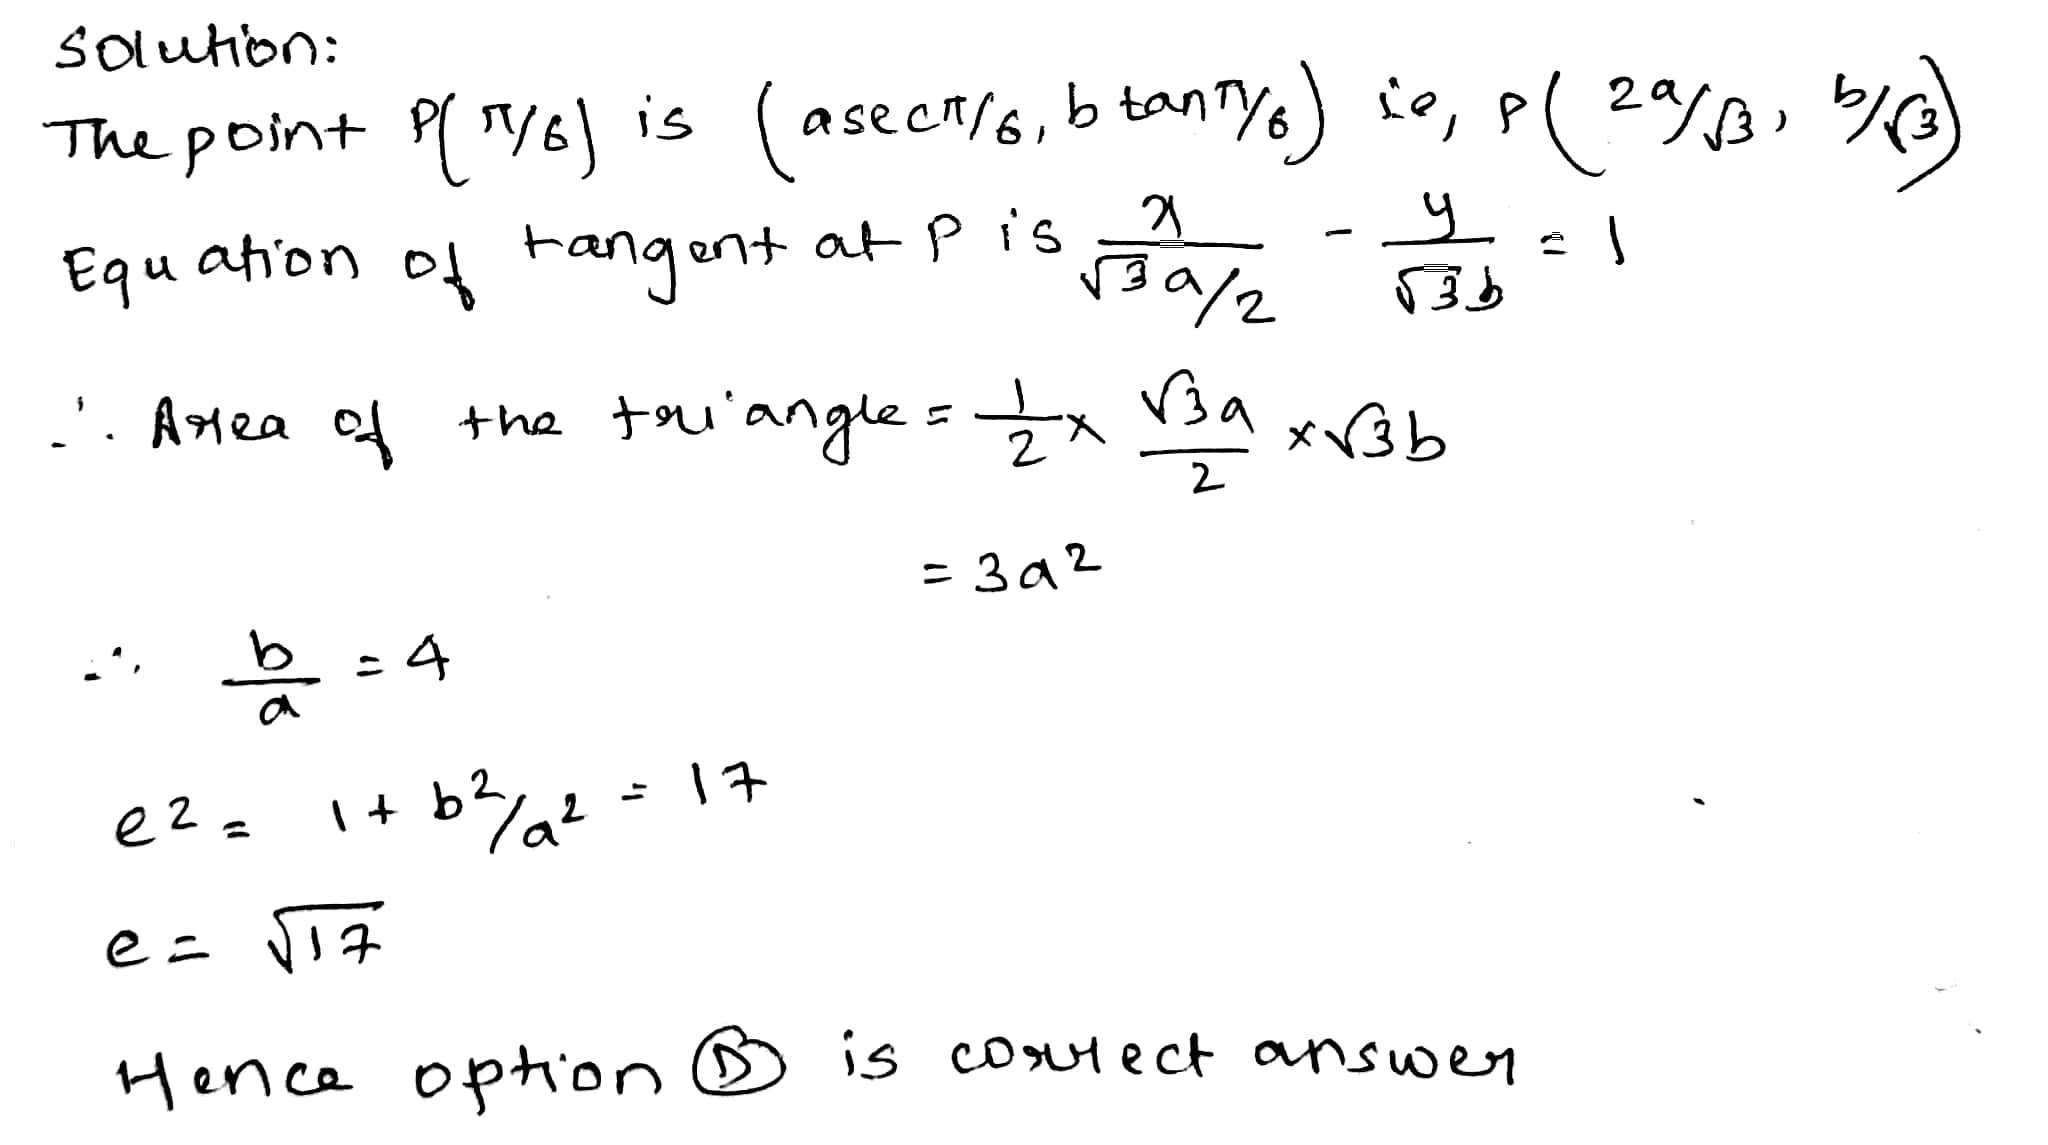 Solution:
The point P(π/6) is (a sec π/6, b tan π/6) ie, P(2a/√3, b/√3)
Equation of tangent at P is x/(√3a/2) - y/(√3b) = 1
∴ Area of the triangle = 1/2 × √3a/2 × √3b
= 3a²
∴ b/a = 4
e² = 1 + b²/a² = 17
e = √17
Hence option Ⓓ is correct answer